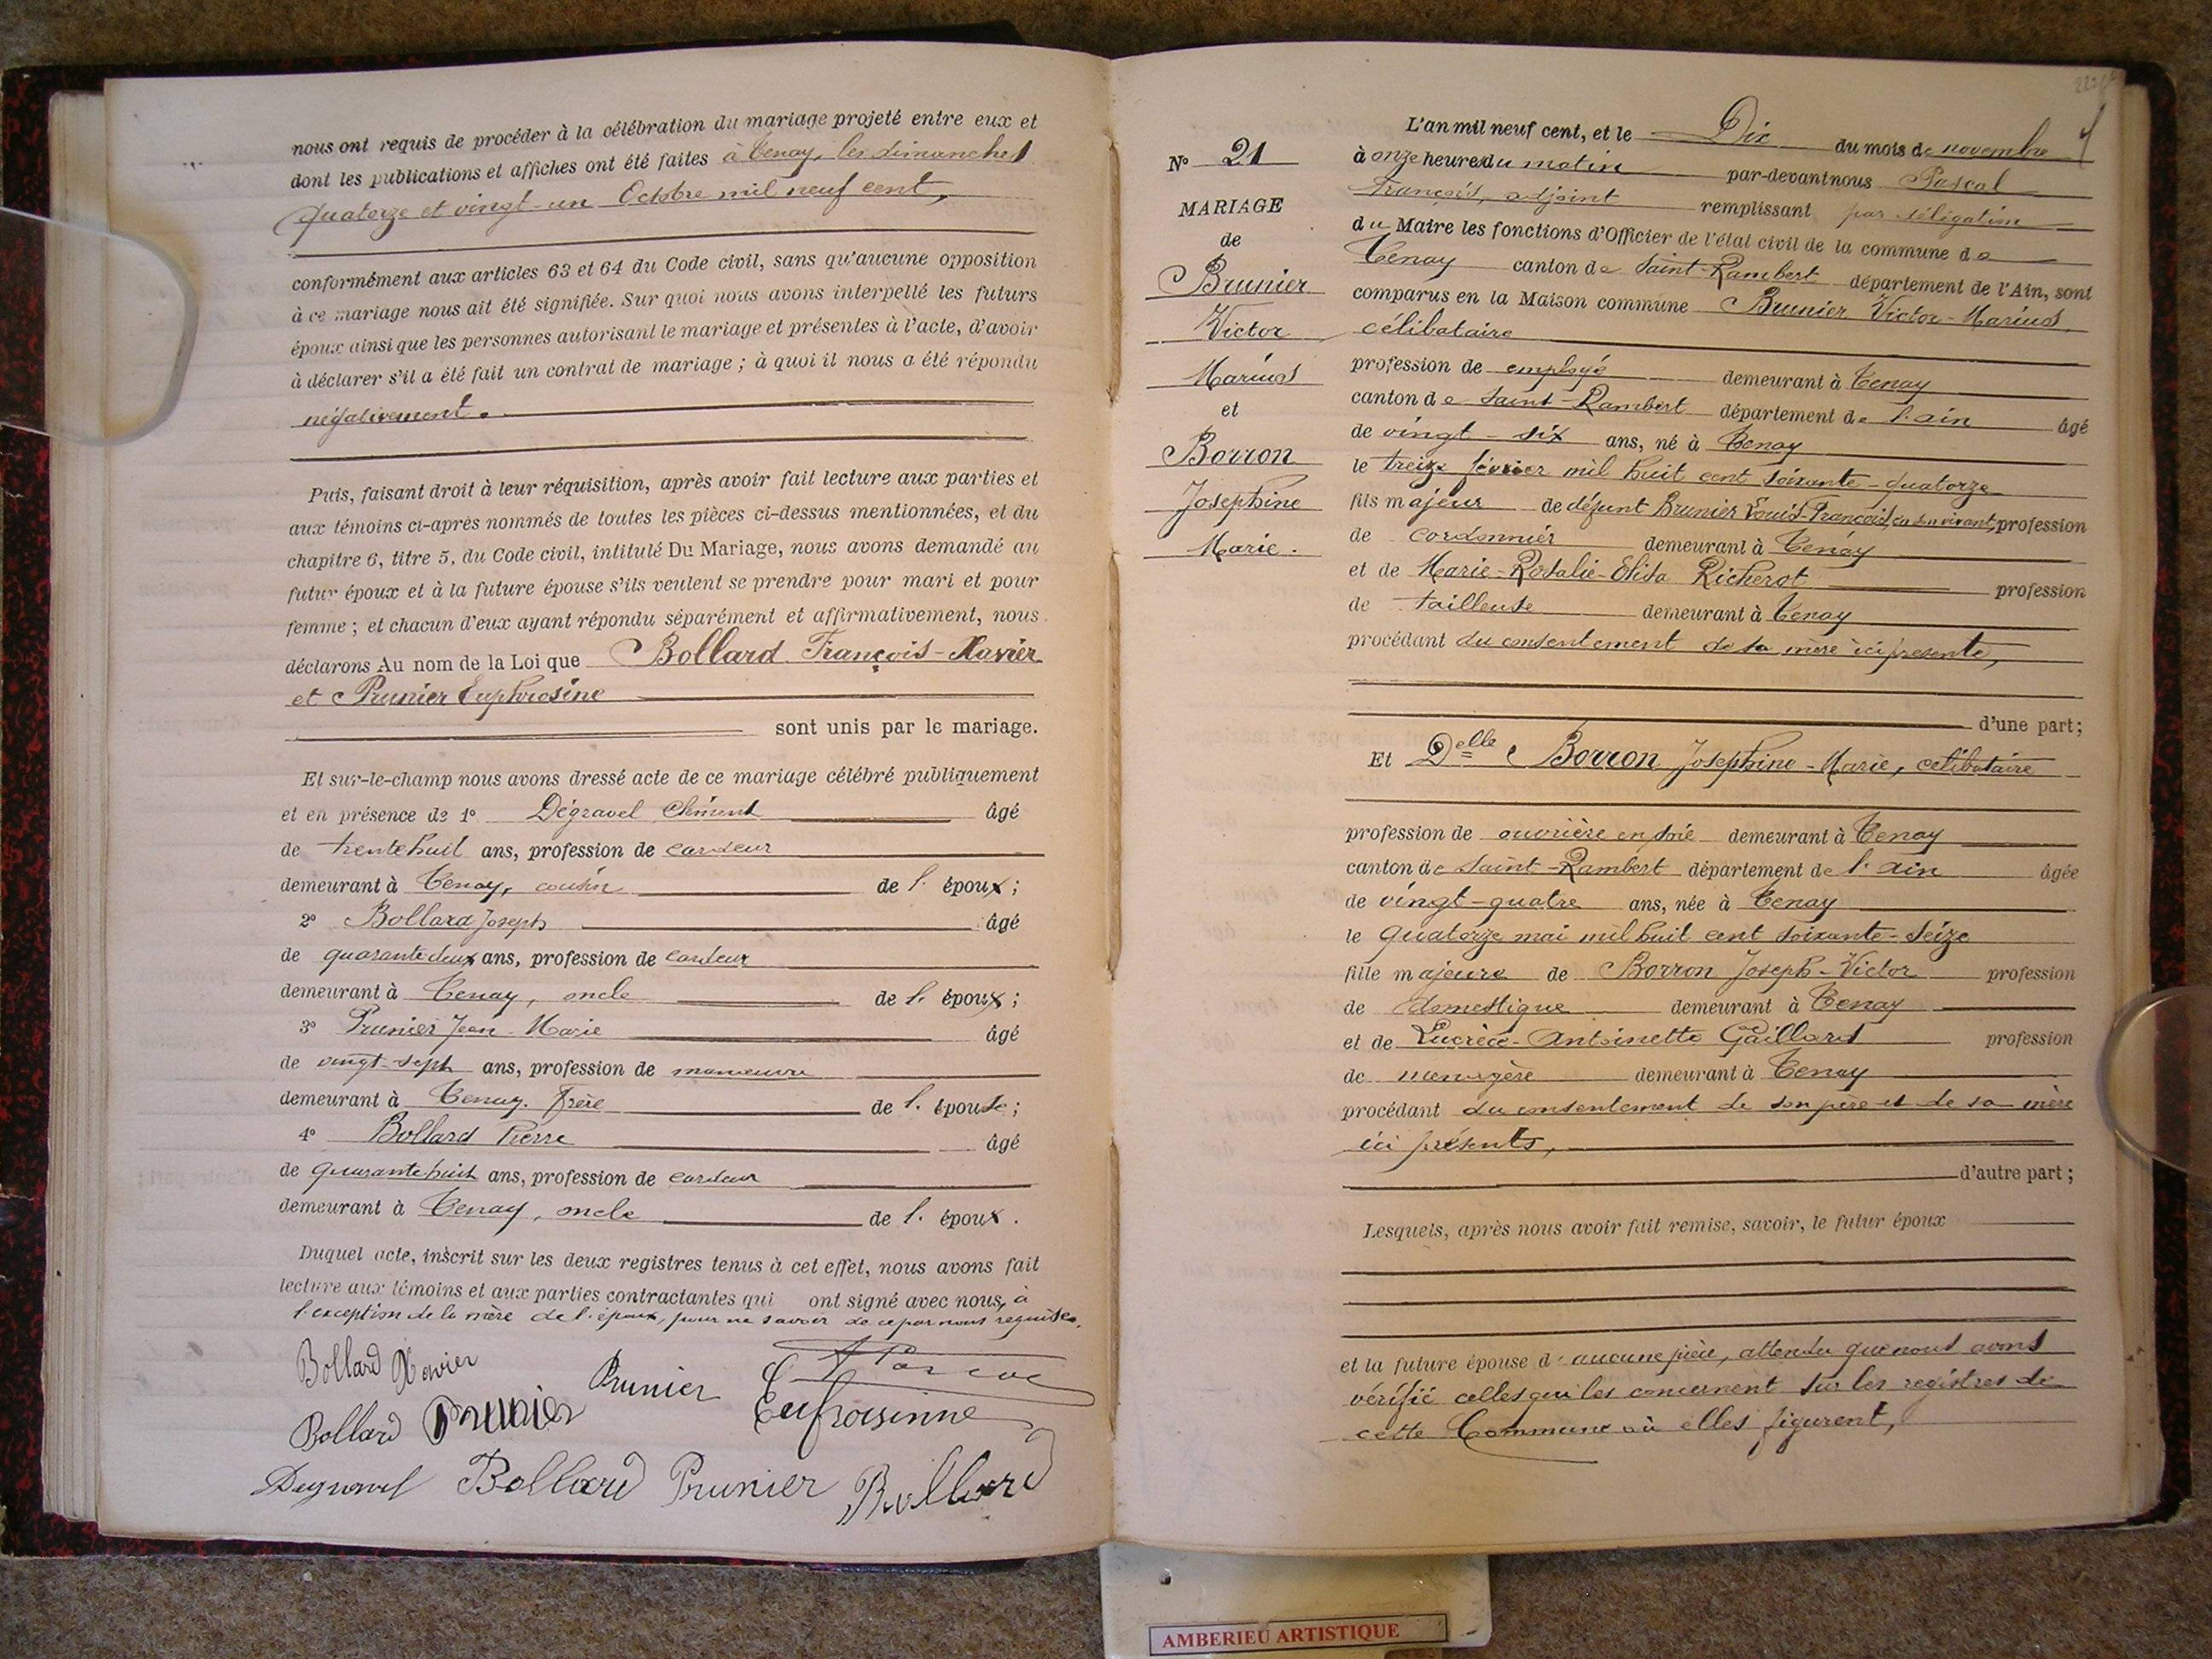 nous ont requis de procéder à la célébration du mariage projeté entre eux et
dont les publications et affiches ont été faites à Tenay, les dimanches
quatorze et vingt-un Octobre mil neuf cent,
conformément aux articles 63 et 64 du Code civil, sans qu'aucune opposition
à ce mariage nous ait été signifiée. Sur quoi nous avons interpellé les futurs
époux ainsi que les personnes autorisant le mariage et présentes à l'acte, d'avoir
à déclarer s'il a été fait un contrat de mariage ; à quoi il nous a été répondu
négativement.
Puis, faisant droit à leur réquisition, après avoir fait lecture aux parties et
aux témoins ci-après nommés de toutes les pièces ci-dessus mentionnées, et du
chapitre 6, titre 5, du Code civil, intitulé Du Mariage, nous avons demandé au
futur époux et à la future épouse s'ils veulent se prendre pour mari et pour
femme ; et chacun d'eux ayant répondu séparément et affirmativement, nous
déclarons Au nom de la Loi que Bollard François-Xavier
et Prunier Euphrosine
sont unis par le mariage.
Et sur-le-champ nous avons dressé acte de ce mariage célébré publiquement
et en présence de 1° Dégravel Clément âgé
de trente huit ans, profession de cardeur
demeurant à Tenay, cousin de l' époux ;
2° Bollard Joseph âgé
de quarante deux ans, profession de cardeur
demeurant à Tenay, oncle de l' époux ;
3° Prunier Jean-Marie âgé
de vingt-sept ans, profession de manoeuvre
demeurant à Tenay. Frère de l' épouse ;
4° Bollard Pierre âgé
de quarante huit ans, profession de cardeur
demeurant à Tenay, oncle de l' époux.
Duquel acte, inscrit sur les deux registres tenus à cet effet, nous avons fait
lecture aux témoins et aux parties contractantes qui ont signé avec nous, à
l'exception de la mère de l'époux, pour ne savoir de ce par nous requise.
Bollard Xavier
Prunier
Pascal
Bollard Prunier Eufrosinne
Bollard Prunier Bollard
N° 21
MARIAGE
de
Brunier
Victor
Marius
et
Borron
Josephine
Marie.
L'an mil neuf cent, et le Dix du mois de novembre
à onze heures du matin par-devant nous Pascal
François, adjoint remplissant par délégation
du Maire les fonctions d'Officier de l'état civil de la commune de
Tenay canton de Saint-Rambert département de l'Ain, sont
comparus en la Maison commune Brunier Victor-Marius,
célibataire
profession de employé demeurant à Tenay
canton de Saint-Rambert département de l'ain âgé
de vingt-six ans, né à Tenay
le treize février mil huit cent soixante-quatorze
fils majeur de défunt Brunier Louis-François, en son vivant, profession
de cordonnier demeurant à Tenay
et de Marie-Rosalie-Elisa Richerot profession
de tailleuse demeurant à Tenay
procédant du consentement de sa mère ici présente,
d'une part ;
Et Delle Borron Josephine-Marie, célibataire
profession de ouvrière en soie demeurant à Tenay
canton de Saint-Rambert département de l'ain âgée
de vingt-quatre ans, née à Tenay
le quatorze mai mil huit cent soixante-seize
fille majeure de Borron Joseph-Victor profession
de domestique demeurant à Tenay
et de Lucrèce-Antoinette Gaillard profession
de ménagère demeurant à Tenay
procédant du consentement de son père et de sa mère
ici présents,
d'autre part ;
Lesquels, après nous avoir fait remise, savoir, le futur époux
et la future épouse d'aucune pièce, attendu que nous avons
vérifié celles qui les concernent sur les registres de
cette Commune où elles figurent,
AMBERIEU ARTISTIQUE